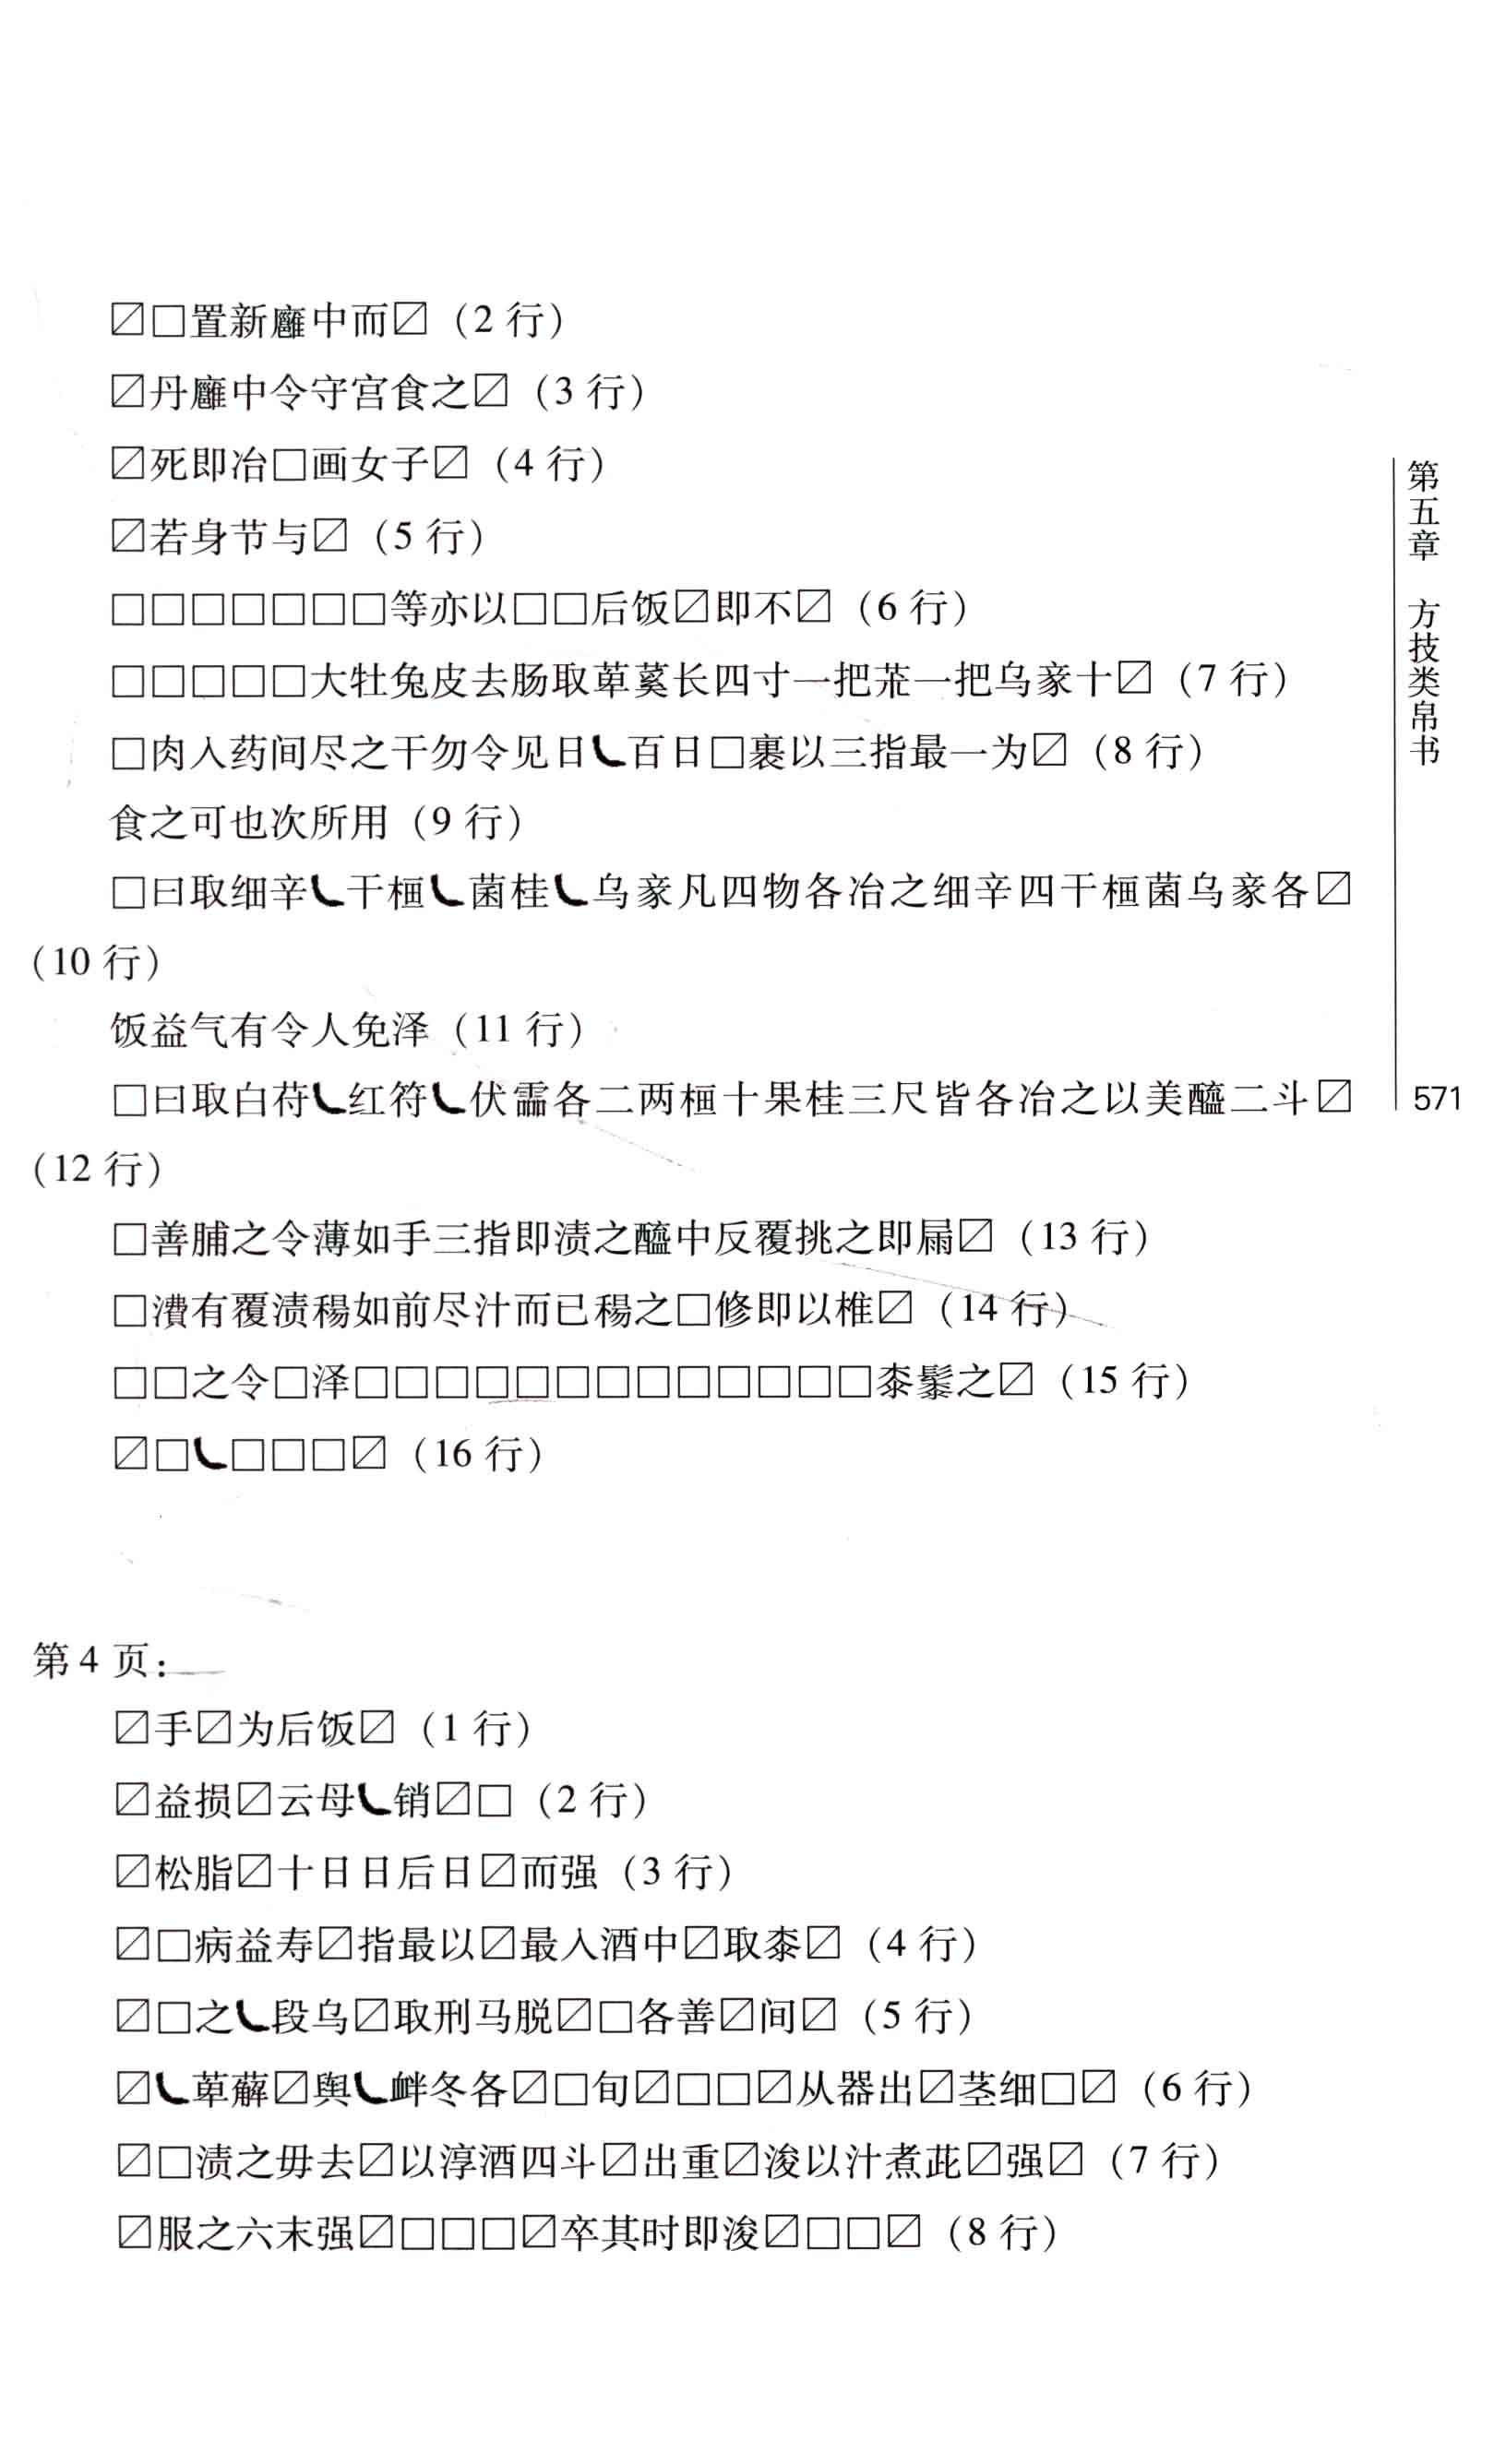 ☒□置新廱中而☒（2 行）
☒丹廱中令守宫食之☒（3 行）
☒死即冶□画女子☒（4 行）
☒若身节与☒（5 行）
□□□□□□□等亦以□□后饭☒即不☒（6 行）
□□□□□大牡兔皮去肠取萆荚长四寸一把茮一把乌豙十☒（7 行）
□肉入药间尽之干勿令见日㇄百日□裹以三指最一为☒（8 行）
食之可也次所用（9 行）
□曰取细辛㇄干㮓㇄菌桂㇄乌豙凡四物各冶之细辛四干㮓菌乌豙各☒
（10 行）
饭益气有令人免泽（11 行）
□曰取白苻㇄红符㇄伏霝各二两㮓十果桂三尺皆各冶之以美醯二斗☒
（12 行）
□善脯之令薄如手三指即渍之醯中反覆挑之即扇☒（13 行）
□有覆渍炀如前尽汁而已炀之□修即以椎☒（14 行）
□□之令□泽□□□□□□□□□□□□□桼髹之☒（15 行）
☒□㇄□□□☒（16 行）
第 4 页：
☒手☒为后饭☒（1 行）
☒益损☒云母㇄销☒□（2 行）
☒松脂☒十日日后日☒而强（3 行）
☒□病益寿☒指最以☒最入酒中☒取桼☒（4 行）
☒□之㇄段乌☒取刑马脱☒□各善☒间☒（5 行）
☒㇄萆薢☒舆㇄冬各☒□旬☒□□☒从器出☒茎细□☒（6 行）
☒□渍之毋去☒以淳酒四斗☒出重☒浚以汁煮茈☒强☒（7 行）
☒服之六末强☒□□□☒卒其时即浚☒□□☒（8 行）
第五章　方技类帛书
571